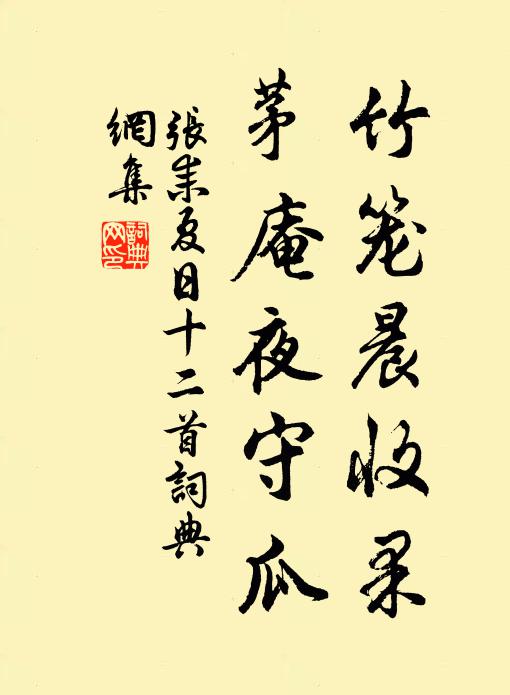 竹笼晨收果
茅庵夜守瓜
張耒夏日十二首詞典
網集
詞典
网印